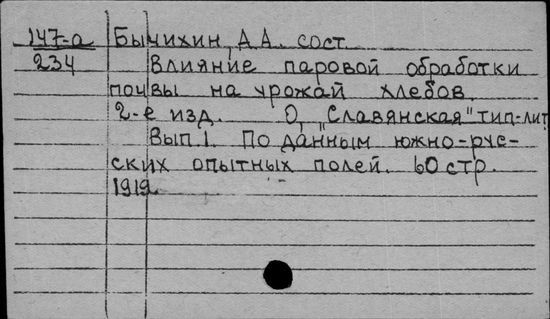 147-а Бычихин, А.А. сост.
234 Влияние паровой обработки
почвы на урожай хлебов.
2-е изд. О, "Славянская" тип-лит
Вып 1. По данным южно-рус-
ских опытных полей. 60 стр.
1919.